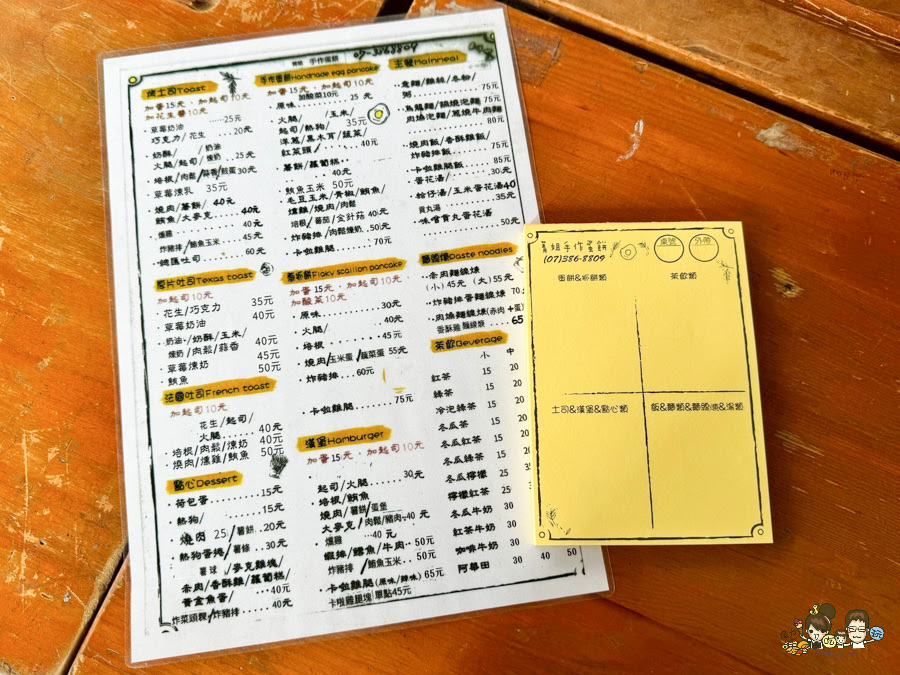 手作蛋餅 07-3868809
烤土司Toast
加蛋15元、加起司10元
加花生醬10元
草莓奶油 ......25元
巧克力/花生 ....20元
奶酥/ /奶油
火腿/起司/煉奶 ...25元
培根/肉鬆/蒜香/煎蛋30元
草莓煉乳 35元
燒肉/薯餅/ 40元
鮪魚/大麥克 .... 40元
燻雞 .......... 40元
炸豬排/鮪魚玉米 .... 45元
總匯土司 .... 60元
厚片吐司Texas toast
加起司10元
花生/巧克力 35元
草莓奶油 40元
奶油/奶酥/玉米/
煉奶/肉鬆/蒜香 40元
草莓煉奶 45元
鮪魚 50元
法國吐司French toast
加起司10元
花生/起司/
火腿... 40元
培根/肉鬆/煉奶 40元
燒肉/燻雞/鮪魚 50元
點心Dessert
荷包蛋 .........15元
熱狗/ .........15元
燒肉 25/薯餅..20元
熱狗蛋捲/薯條 ..30元
薯球 /麥克雞塊/
香酥雞/蘿蔔糕/
黃金魚蛋/ ...40元
炸菜頭粿/炸豬排 ....40元
手作蛋餅Handmade egg pancake
加蛋15元、加起司10元
加酸菜10元
原味 .......... 25 元
火腿/ /玉米/
起司/熱狗/ 35元
洋蔥/黑木耳/蔬菜/
紅菜頭/ .......40元
薯餅/蘿蔔糕..
.. 40元
鮪魚玉米 50元
毛豆玉米/青椒/鮪魚/
燻雞/燒肉/肉鬆
培根/蕃茄/金針菇 40元
炸豬排/肉鬆煉奶..50元
卡啦雞腿 .......70元
Flaky scallion pancake
加蛋15元、加起司10元
加酸菜10元
原味 ..........30元
火腿/ ........40元
培根 ........45元
燒肉/玉米蛋/蔬菜蛋 55元
炸豬排...60元
卡啦雞腿 .......75元
漢堡Hamburger
加蛋15元、加起司10元
起司/火腿 .....30元
培根/鮪魚
燒肉/薯餅/蛋堡
大麥克/肉鬆/豬肉..40元
燻雞 ..40元
蝦排/鱈魚/牛肉..50元
炸豬排 /鮪魚玉米..50元
卡啦雞腿(原味/辣味) 65元
卡啦雞腿塊 單點45元
主餐Mainmeal
意麵/雞絲/冬粉/
粥 .......... 75元
烏龍麵/鍋燒泡麵 75元
肉燥泡麵/蔥燒牛肉麵
80元
燒肉飯/香酥雞飯/
炸豬排飯 75元
卡啦雞腿飯 85元
蛋花湯/ .......30元
餛仔湯/玉米蛋花湯40
貢丸湯 35元
味噌貢丸蛋花湯
.......... 50元
Paste noodles
(小)45元 (大)55元
炸豬排蛋麵線焿 70
(赤肉+蛋)
香酥雞 麵線焿 ... 65
茶飲Beverage
小 中
紅茶 15 20
綠茶 15 20
冷泡綠茶 15 20
冬瓜茶 15 20
冬瓜紅茶 15 20
冬瓜綠茶 15 20
冬瓜檸檬 25 35
檸檬紅茶 25 3
冬瓜牛奶 30
紅茶牛奶 30
咖啡牛奶 30
阿華田 30 40 50
手作蛋餅 桌號 外帶
(07)386-8809
茶飲類
土司&漢堡&點心類